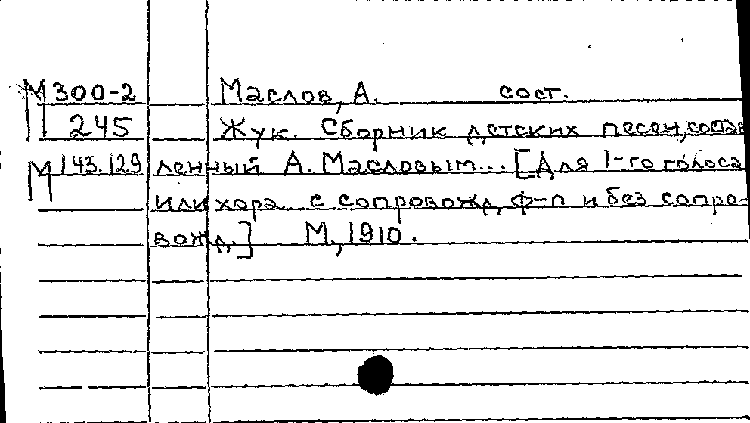 М 300-2 Маслов, А. сост.
245 Жук. Сборник детских песен, состав
М 143.129 ленный А. Масловым... [Для 1-го голоса
или хора с сопровожд. ф-п и без сопро-
вожд.] М., 1910.